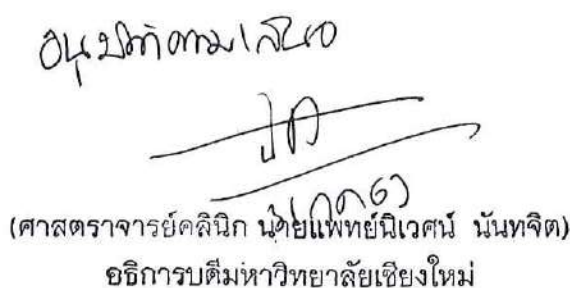 อนุมัติตามเสนอ
(ศาสตราจารย์คลินิก นายแพทย์นิเวศน์ นันทจิต)
อธิการบดีมหาวิทยาลัยเชียงใหม่